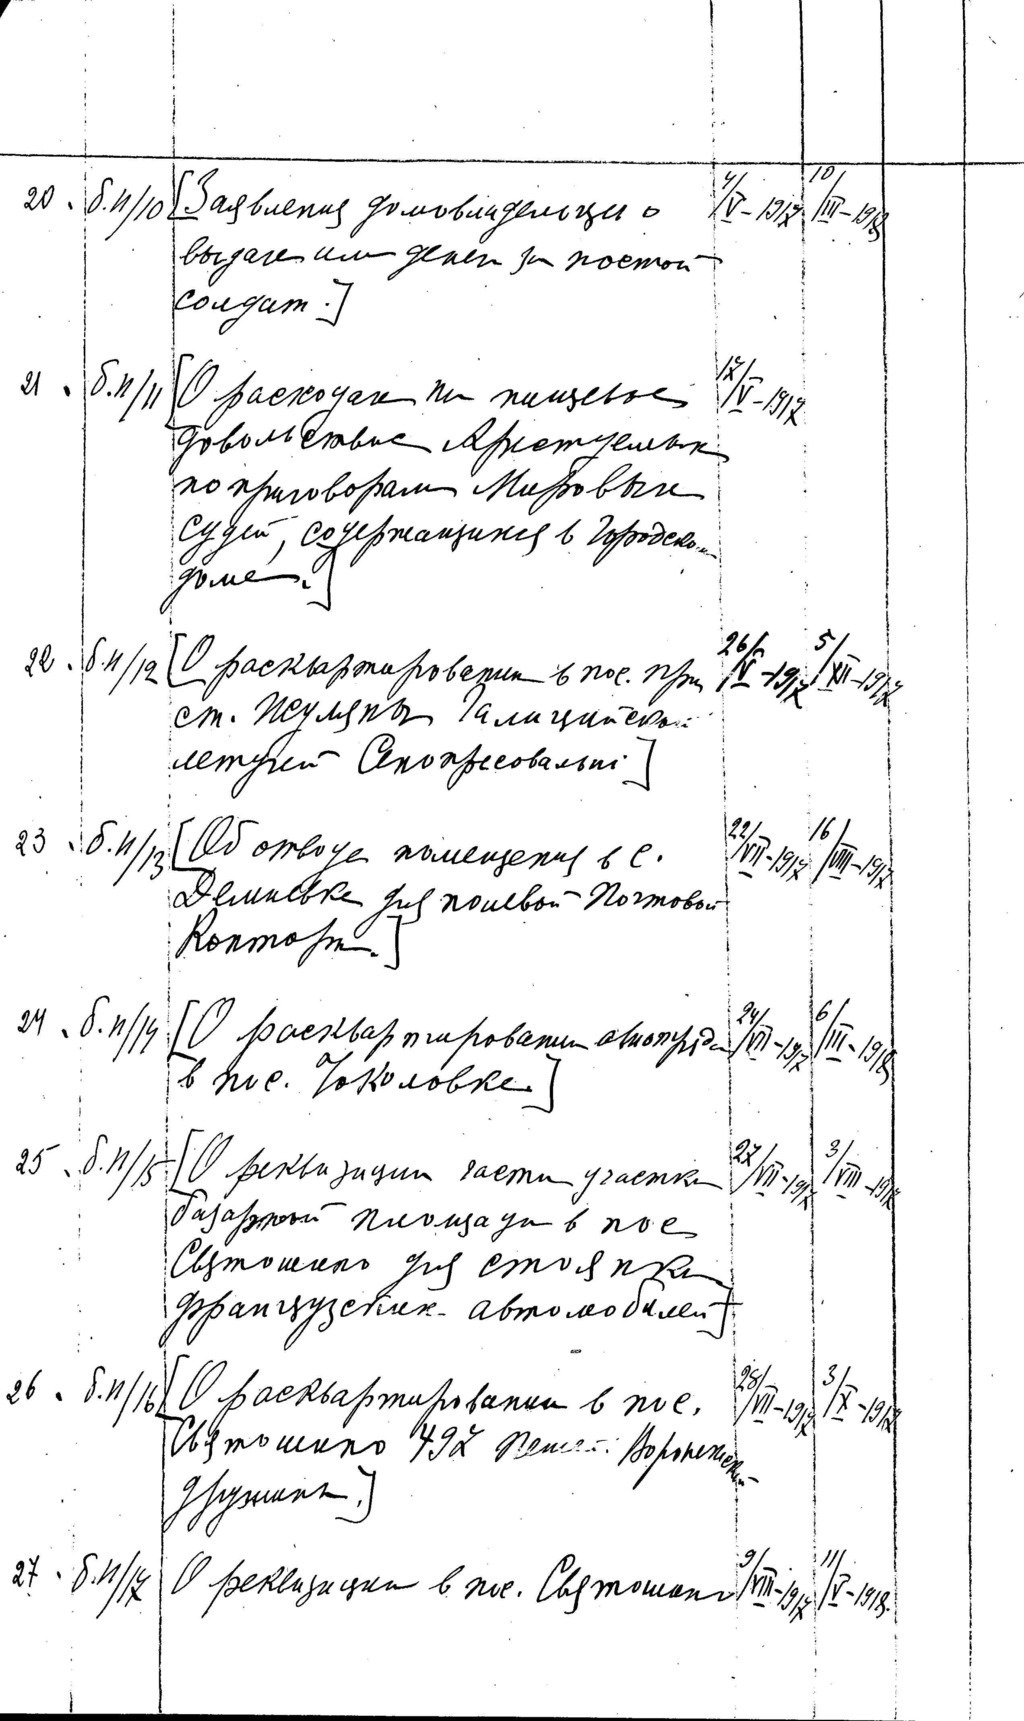 20. б.н/10 [Заявления домовладельцев о 4/V-1917 10/III-1918
выдаче им денег за постой
солдат.]
21. б.н/11 [О расходах на пищевое 17/V-1917
довольствие Арестуемых
по приговорам Мировых
Судей, содержащихся в Городском
доме.]
22. б.н/12 [О расквартировании в пос. при 26/V-1917 5/XII-1917
ст. Жуляны Галицийской
летучей Сенопресовальни]
23. б.н/13 [Об отводе помещения в с. 22/VII-1917 16/VIII-1917
Демиевке для полевой Почтовой
Конторы.]
24. б.н/14 [О расквартировании автоотряда 24/VII-1917 6/III-1918
в пос. Чоколовке.]
25. б.н/15 [О реквизиции части участка 27/VII-1917 3/VIII-1917
базарной площади в пос
Святошино для стоянки
французских автомобилей]
26. б.н/16 [О расквартировании в пос. 28/VII-1917 3/X-1917
Святошино 497 Пешей Воронежской
дружины.]
27. б.н/17 О реквизиции в пос. Святошино 9/VIII-1917 11/V-1918.